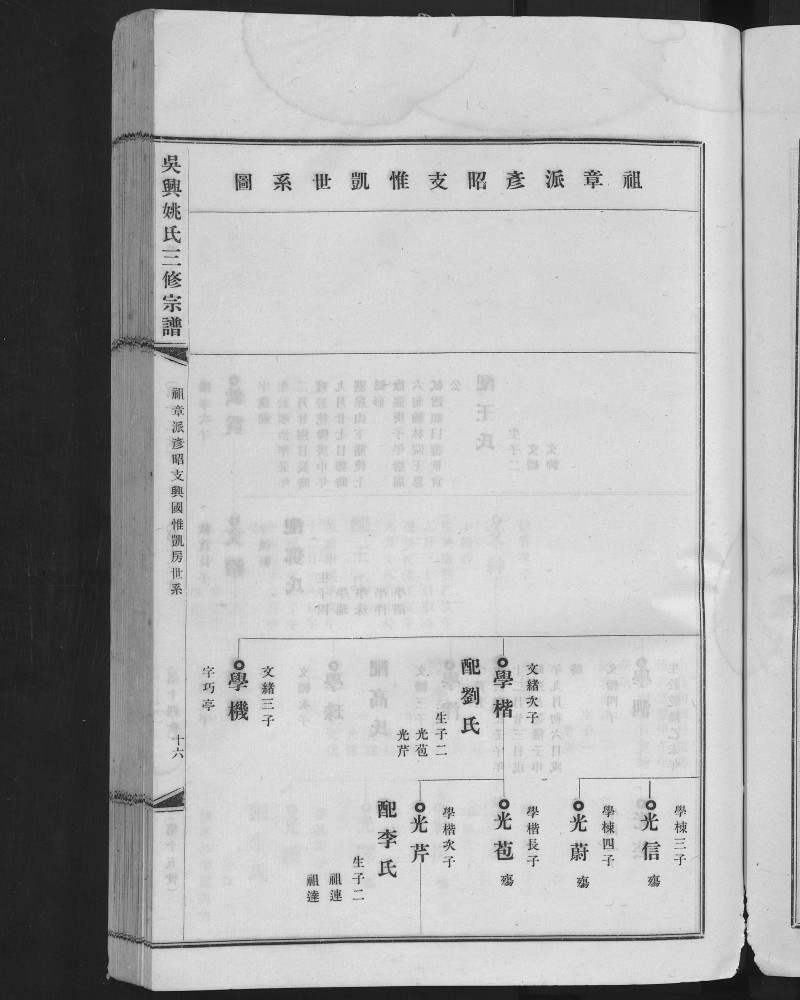 吳興姚氏三修宗譜
祖章派彥昭支興國惟凱房世系
十六
祖章派彥昭支惟凱世系圖
文緒次子
學楷
配劉氏
生子二
光苞
光芹
文緒三子
學機
字巧亭
學棟三子
光信
殤
學棟四子
光蔚
殤
學楷長子
光苞
殤
學楷次子
光芹
配李氏
生子二
祖連
祖達